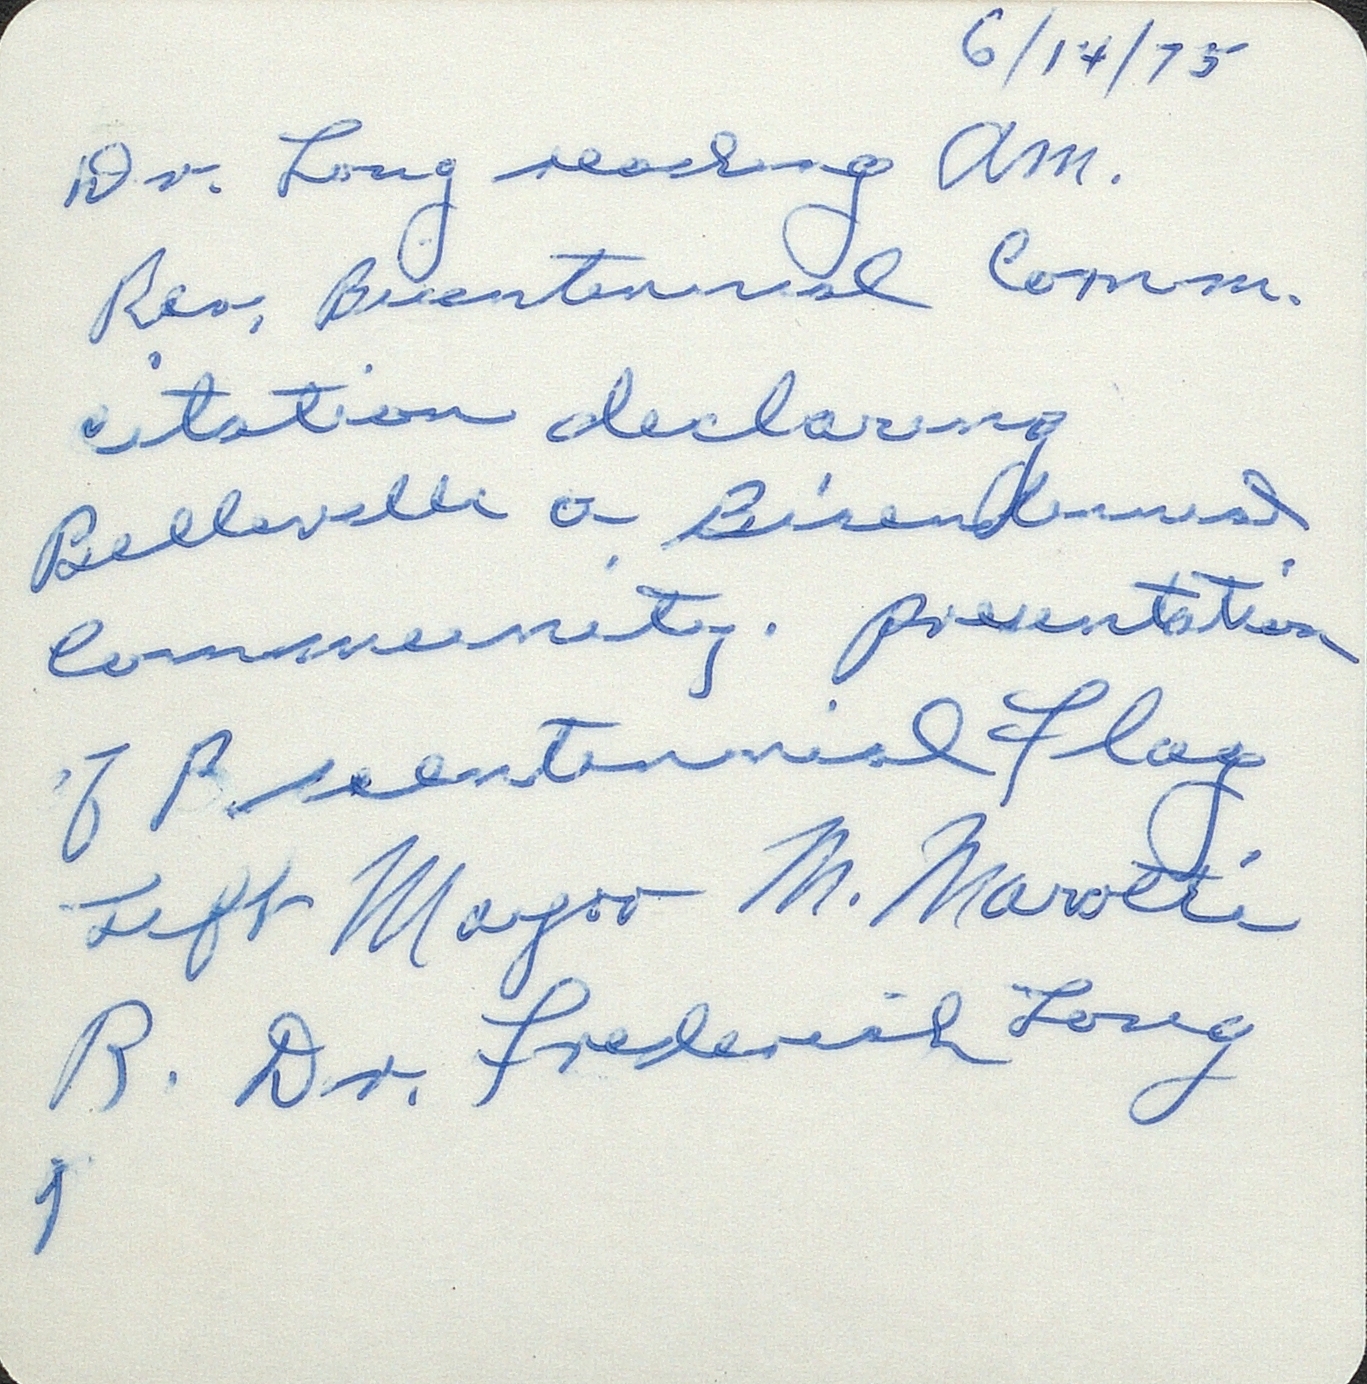 6/14/75
Dr. Long reading Am.
Rev. Bicentennial Comm.
citation declaring
Belleville a Bicentennial
Community. presentation
of Bicentennial Flag
Left Mayor M. Marotti
R. Dr. Frederick Long